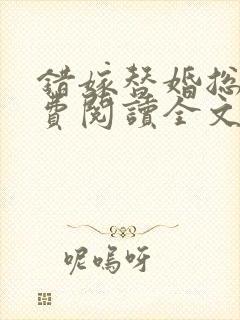 错嫁替婚总
费阅读全文
呢呜呀